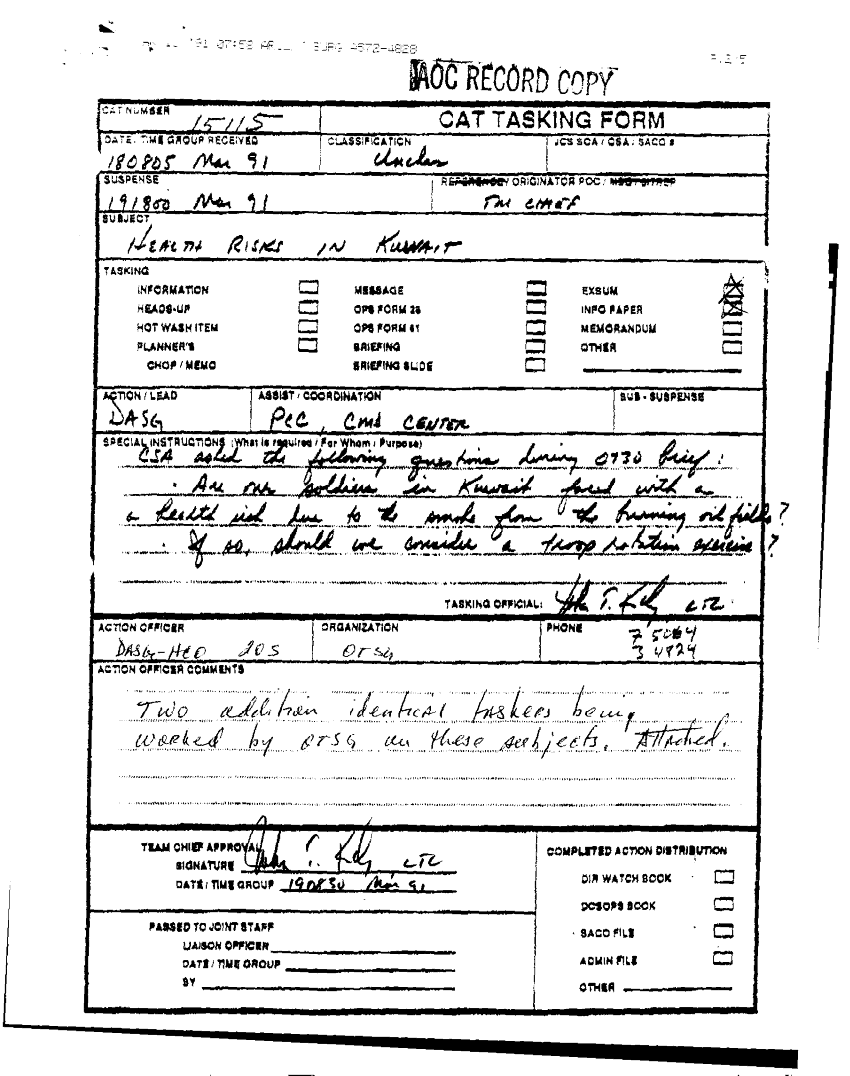 91 07:53 4572-4828
AOC RECORD COPY
CAT NUMBER 15115
CAT TASKING FORM
DATE / TIME GROUP RECEIVED CLASSIFICATION JCS SOA / GSA / SACO #
180805 Mar 91 Unclas
SUSPENSE ORIGINATOR POC /
191800 Mar 91 TM CHIEF
SUBJECT
HEALTH RISKS IN KUWAIT
TASKING
INFORMATION MESSAGE EXSUM
HEADS-UP OPS FORM 28 INFO PAPER
HOT WASH ITEM OPS FORM 61 MEMORANDUM
PLANNER'S BRIEFING OTHER
CHOP / MEMO BRIEFING SLIDE
ACTION / LEAD ASSIST / COORDINATION SUB - SUSPENSE
DASG PCC, Cmd CENTER
SPECIAL INSTRUCTIONS (What is required / For Whom / Purpose)
CSA asked the following questions during 0730 brief :
· Are our soldiers in Kuwait faced with a
a health risk due to the smoke from the burning oil fields?
· If so, should we consider a troop rotation exercise?
TASKING OFFICIAL: John T. Kelly LTC
ACTION OFFICER ORGANIZATION PHONE
DASG-HCO 205 OTSG 75064
34924
ACTION OFFICER COMMENTS
Two addition identical taskers being
worked by OTSG on these subjects. Attached.
TEAM CHIEF APPROVAL
SIGNATURE John T. Kelly LTC
DATE / TIME GROUP 190830 Mar 91
COMPLETED ACTION DISTRIBUTION
DIR WATCH BOOK
DCSOPS BOOK
SACO FILE
ADMIN FILE
OTHER
PASSED TO JOINT STAFF
LIAISON OFFICER
DATE / TIME GROUP
BY